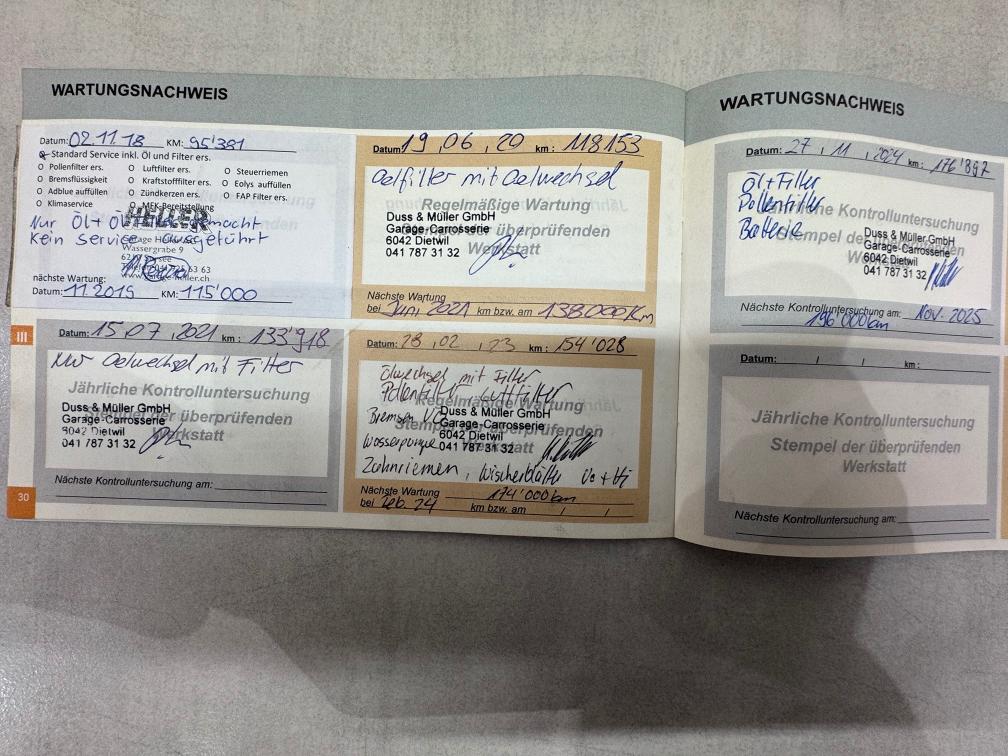 WARTUNGSNACHWEIS
Datum: 02.11.18 KM: 95'381
Standard Service inkl. Öl und Filter ers.
O Pollenfilter ers. O Luftfilter ers. O Steuerriemen
O Bremsflüssigkeit O Kraftstofffilter ers. O Eolys auffüllen
O Adblue auffüllen O Zündkerzen ers. O FAP Filter ers.
O Klimaservice O MFK-Bereitstellung
HELLER
Nur Öl + gemacht
Kein Service ausgeführt
Wassergrabe 9
nächste Wartung:
Datum: 11.2019 KM: 115'000
Datum: 19.06.20 km: 118153
Oelfilter mit Oelwechsel
Regelmäßige Wartung
Duss & Müller GmbH
Garage-Carrosserie
6042 Dietwil
041 787 31 32
überprüfenden
Werkstatt
Nächste Wartung
bei Juni 2021 km bzw. am 138000 Km
III
Datum: 15.07.2021 km: 133'918
Oelwechsel mit Filter
Jährliche Kontrolluntersuchung
Stempel der überprüfenden
Werkstatt
Duss & Müller GmbH
Garage-Carrosserie
6042 Dietwil
041 787 31 32
Nächste Kontrolluntersuchung am:
30
Datum: 28.02.23 km: 154'028
Ölwechsel mit Filter
Pollenfilter, Luftfilter
Regelmäßige Wartung
Bremsen
Duss & Müller GmbH
Garage-Carrosserie
6042 Dietwil
041 787 31 32
Wasserpumpe
Zahnriemen, Wischerblätter Vo + Hi
Nächste Wartung 174'000 km
bei Feb. 24 km bzw. am / /
WARTUNGSNACHWEIS
Datum: 27.11.2024 km: 176'897
Öl + Filter
Pollenfilter
Batterie
Jährliche Kontrolluntersuchung
Stempel der überprüfenden
Duss & Müller GmbH
Garage-Carrosserie
6042 Dietwil
041 787 31 32
Nächste Kontrolluntersuchung am: Nov. 2025
196'000 km
Datum: / / km:
Jährliche Kontrolluntersuchung
Stempel der überprüfenden
Werkstatt
Nächste Kontrolluntersuchung am: